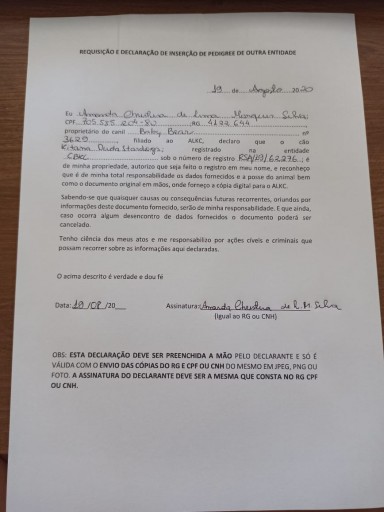 REQUISIÇÃO E DECLARAÇÃO DE INSERÇÃO DE PEDIGREE DE OUTRA ENTIDADE
19 de Agosto 2020
Eu Amanda Christina de Lima Marques Silva
705.585 RG 4122644
proprietário do canil Baby Bear nº
3629 filiado ao ALKC, declaro que o cão
Kitana registrado na entidade
CBKC sob o número de registro é
de minha propriedade, autorizo que seja feito o registro em meu nome, e reconheço
que é de minha total responsabilidade os dados fornecidos e a posse do animal bem
como o documento original em mãos, onde forneço a cópia digital para o ALKC.
Sabendo-se que quaisquer causas ou consequências futuras recorrentes, oriundos por
informações deste documento fornecido, serão de minha responsabilidade. E que ainda,
caso ocorra algum desencontro de dados fornecidos o documento poderá ser
cancelado.
Tenho ciência dos meus atos e me responsabilizo por ações cíveis e criminais que
possam recorrer sobre as informações aqui declaradas.
O acima descrito é verdade e dou fé
Data: 19/08/20 Assinatura: Amanda Christina de L. M Silva
(Igual ao RG ou CNH)
OBS: ESTA DECLARAÇÃO DEVE SER PREENCHIDA A MÃO PELO DECLARANTE E SÓ É
VÁLIDA COM O ENVIO DAS CÓPIAS DO RG E CPF OU CNH DO MESMO EM JPEG, PNG OU
FOTO. A ASSINATURA DO DECLARANTE DEVE SER A MESMA QUE CONSTA NO RG CPF
OU CNH.